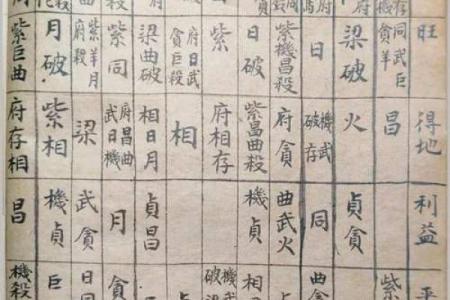 旺
同武巨
貪羊
梁破
日
紫機昌殺
日破
紫
府日武
貪巨殺
梁曲破
紫同
紫羊月
府殺
月破
紫巨曲
得地
昌
火
機武
破存
府貪
紫昌曲殺
府相存
相
相日月
府昌曲
武日機
梁
紫相
府存相
利益
貞貪
同
曲武火
機貞
貞昌
月
武貪
機貞
昌
紫
相
機武
破
貞
貪
日
巨
機殺